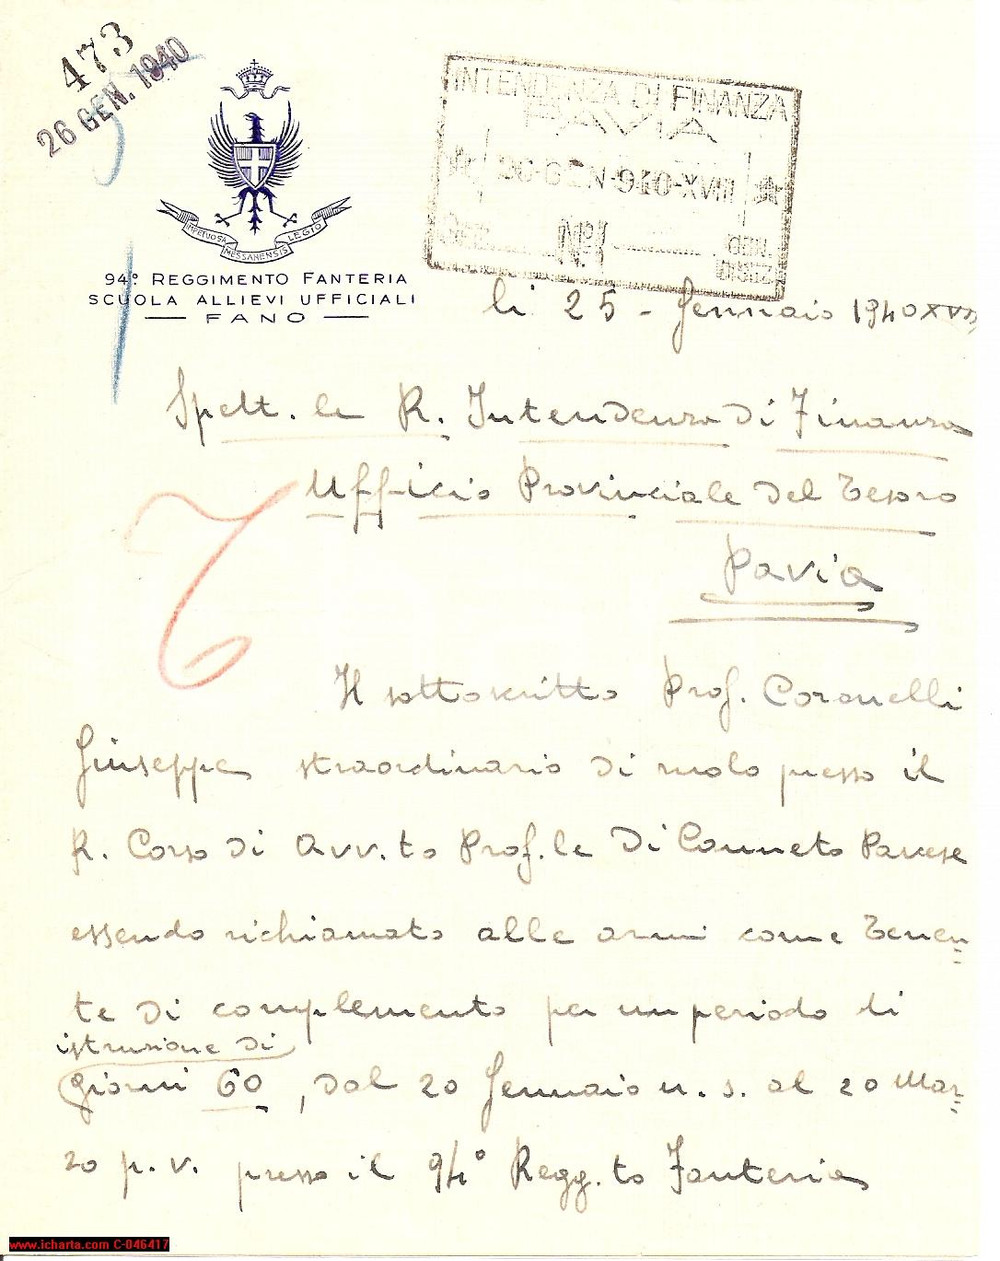 473
26 GEN. 1940
INTENDENZA DI FINANZA
PAVIA
26 GEN. 940-XVIII
IMPETUOSA MESSANENSIS LEGIO
94° REGGIMENTO FANTERIA
SCUOLA ALLIEVI UFFICIALI
FANO
li 25 - Gennaio 1940 XVIII
Spett. le R. Intendenza di Finanza
Ufficio Provinciale del Tesoro
Pavia
Il sottoscritto Prof. Coronelli
Giuseppe straordinario di ruolo presso il
R. Corso di Avv.to Prof.le di Canneto Pavese
essendo richiamato alle armi come Tenen=
te di complemento per un periodo di
istruzione di
giorni 60, dal 20 Gennaio u. s. al 20 Mar=
zo p. v. presso il 94° Regg.to Fanteria
www.icharta.com C-046417